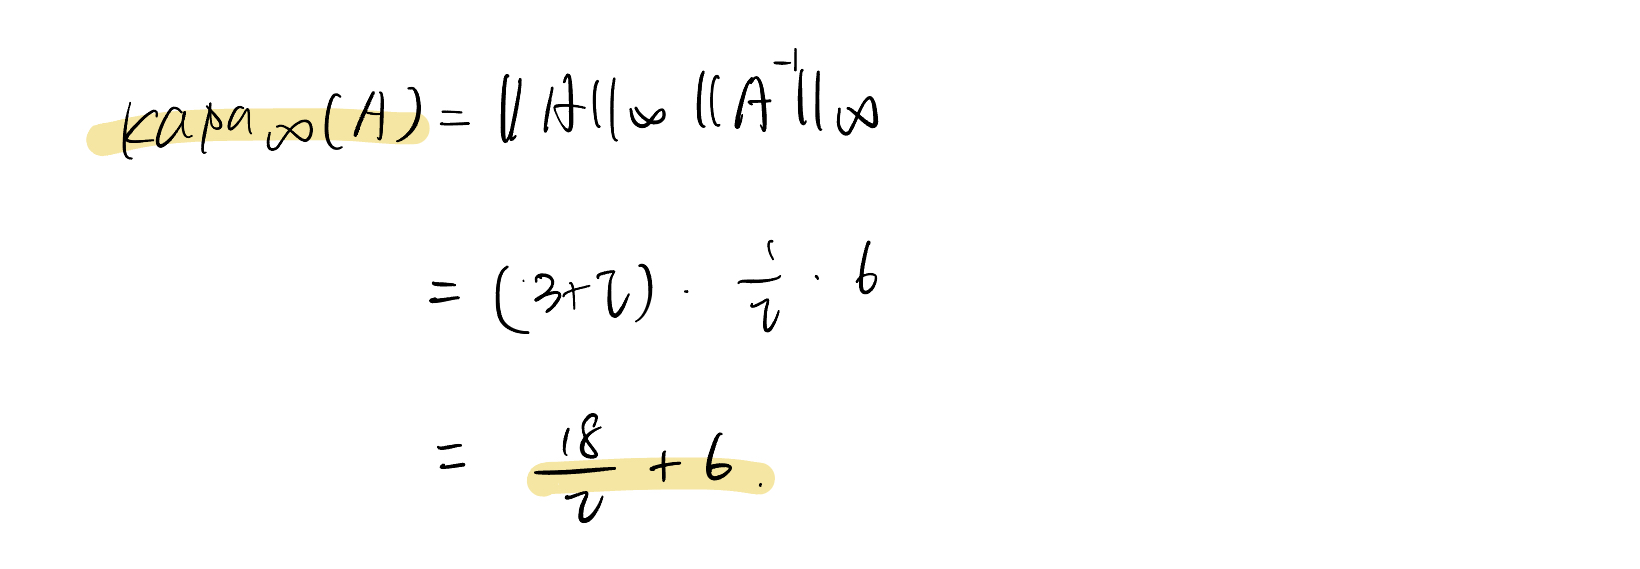 kapa∞(A) = ||A||∞ ||A⁻¹||∞
= (3+τ) · 1/τ · 6
= 18/τ + 6.